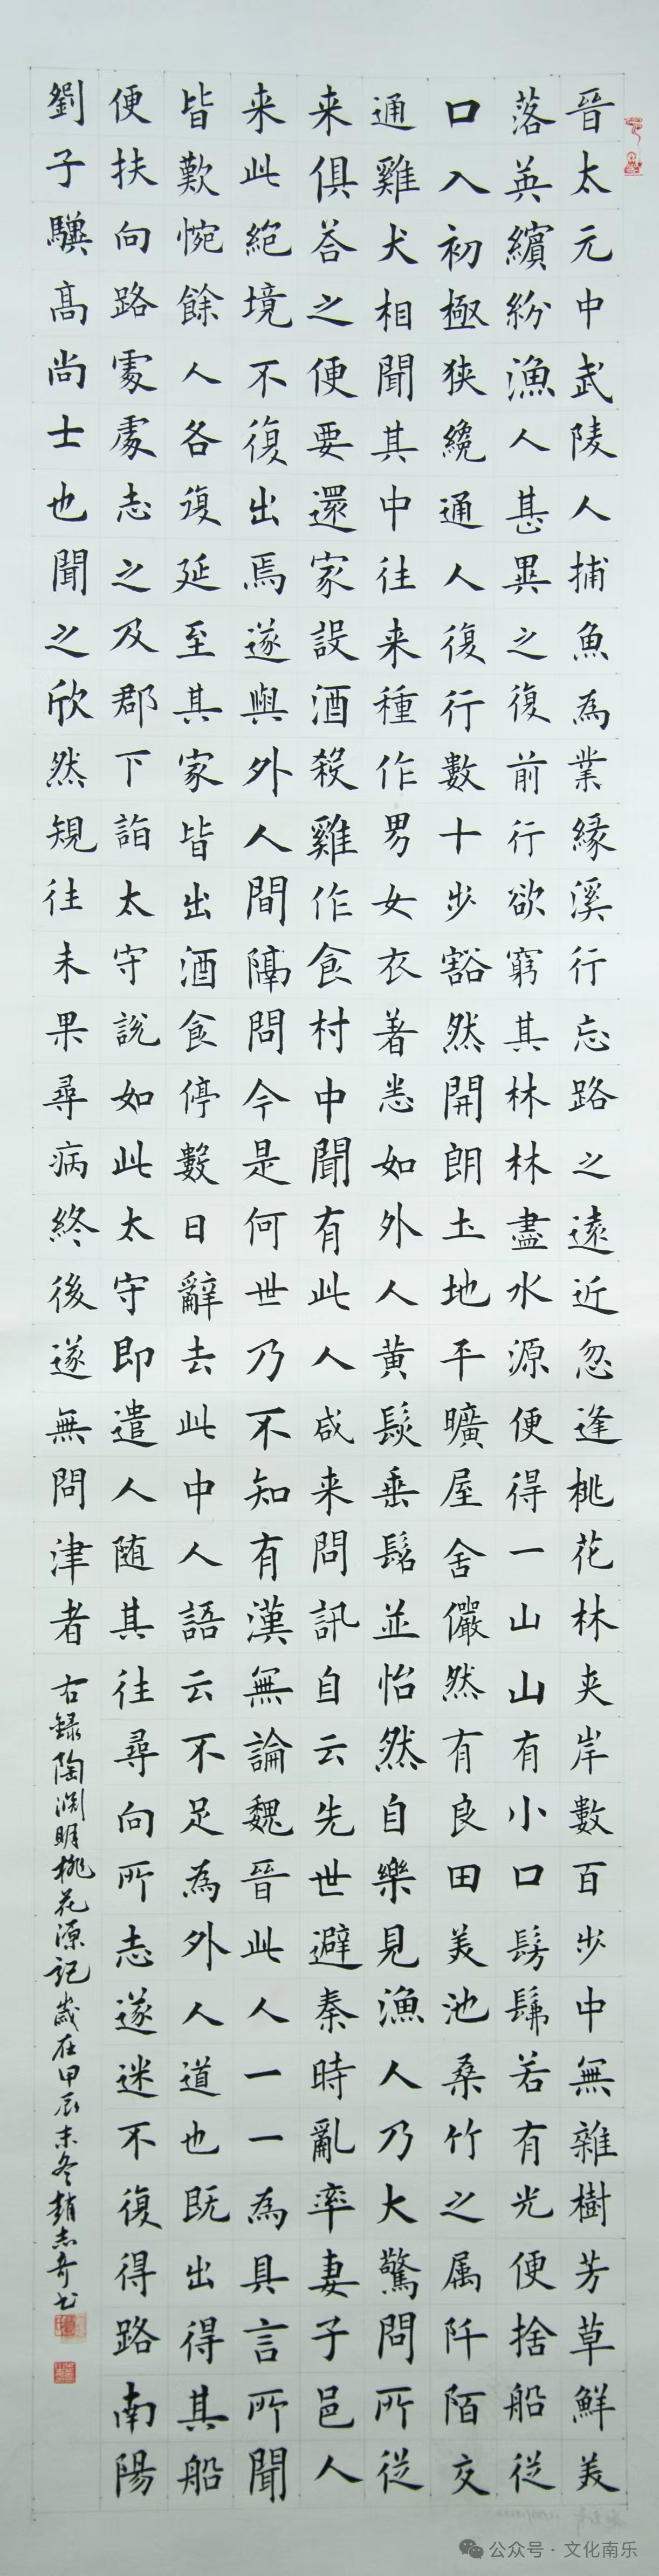 晉太元中武陵人捕魚為業緣溪行忘路之遠近忽逢桃花林夾岸數百步中無雜樹芳草鮮美
落英繽紛漁人甚異之復前行欲窮其林林盡水源便得一山山有小口髣髴若有光便捨船從
口入初極狹纔通人復行數十步豁然開朗土地平曠屋舍儼然有良田美池桑竹之属阡陌交
通雞犬相聞其中往来種作男女衣著悉如外人黄髮垂髫並怡然自樂見漁人乃大驚問所從
来俱荅之便要還家設酒殺雞作食村中聞有此人咸来問訊自云先世避秦時亂率妻子邑人
来此絕境不復出焉遂與外人間隔問今是何世乃不知有漢無論魏晉此人一一為具言所聞
皆歎惋餘人各復延至其家皆出酒食停數日辭去此中人語云不足為外人道也既出得其船
便扶向路處處志之及郡下詣太守說如此太守即遣人随其往尋向所志遂迷不復得路南陽
劉子驥髙尚士也聞之欣然規往未果尋病終後遂無問津者
右録陶淵明桃花源記歲在甲辰末冬趙志奇书
公众号·文化南乐